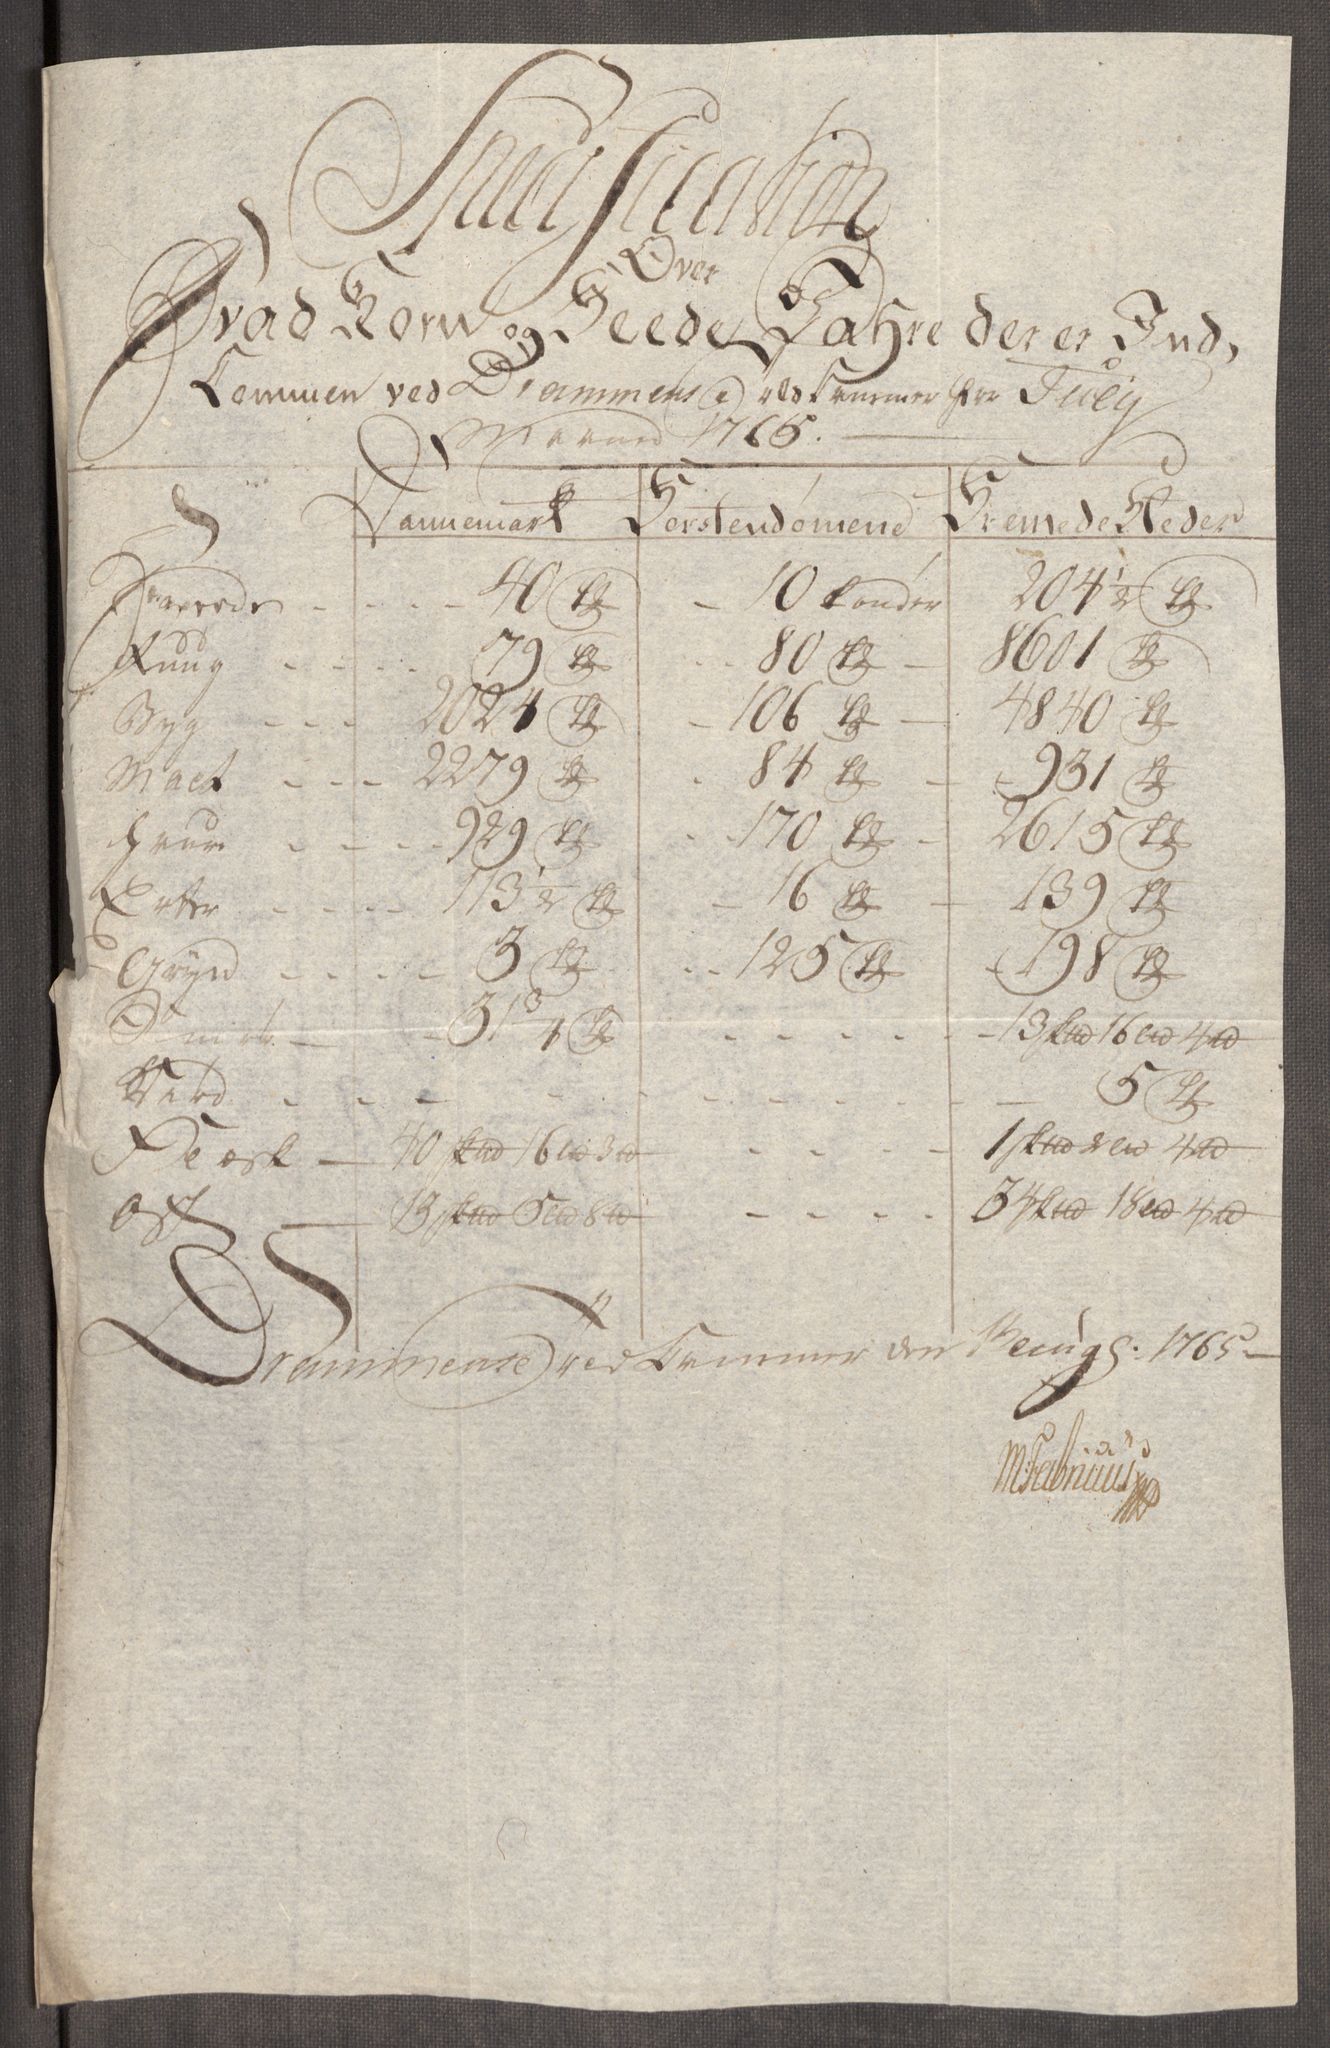 Specification
Over
Hvad Korn og Feede Vahre der er Ind,
Kommen ved Drammens Told Kammer for July
Maaned 1765.
Dannemark Førstendømene Fremede Steder
Hvæede 40 tdr 10 tønder 204 1/2 tdr
Ruug 79 tdr 80 tdr 8601 tdr
Byg 2024 tdr 106 tdr 4840 tdr
Malt 2279 tdr 84 tdr 931 tdr
Haure 929 tdr 170 tdr 2615 tdr
Erter 113 1/2 tdr 16 tdr 139 tdr
Gryn 3 tdr 125 tdr 198 tdr
Smør 31 3/4 tdr 13 skud 16 lid 4 td
Kiød 5 tdr
Flesk 40 skud 16 lid 3 td 1 skud 2 lid 4 td
Ost 13 skud 5 lid 8 td 34 skud 18 lid 4 td
Drammens Told Kammer den Augs: 1765
M: Fabricius